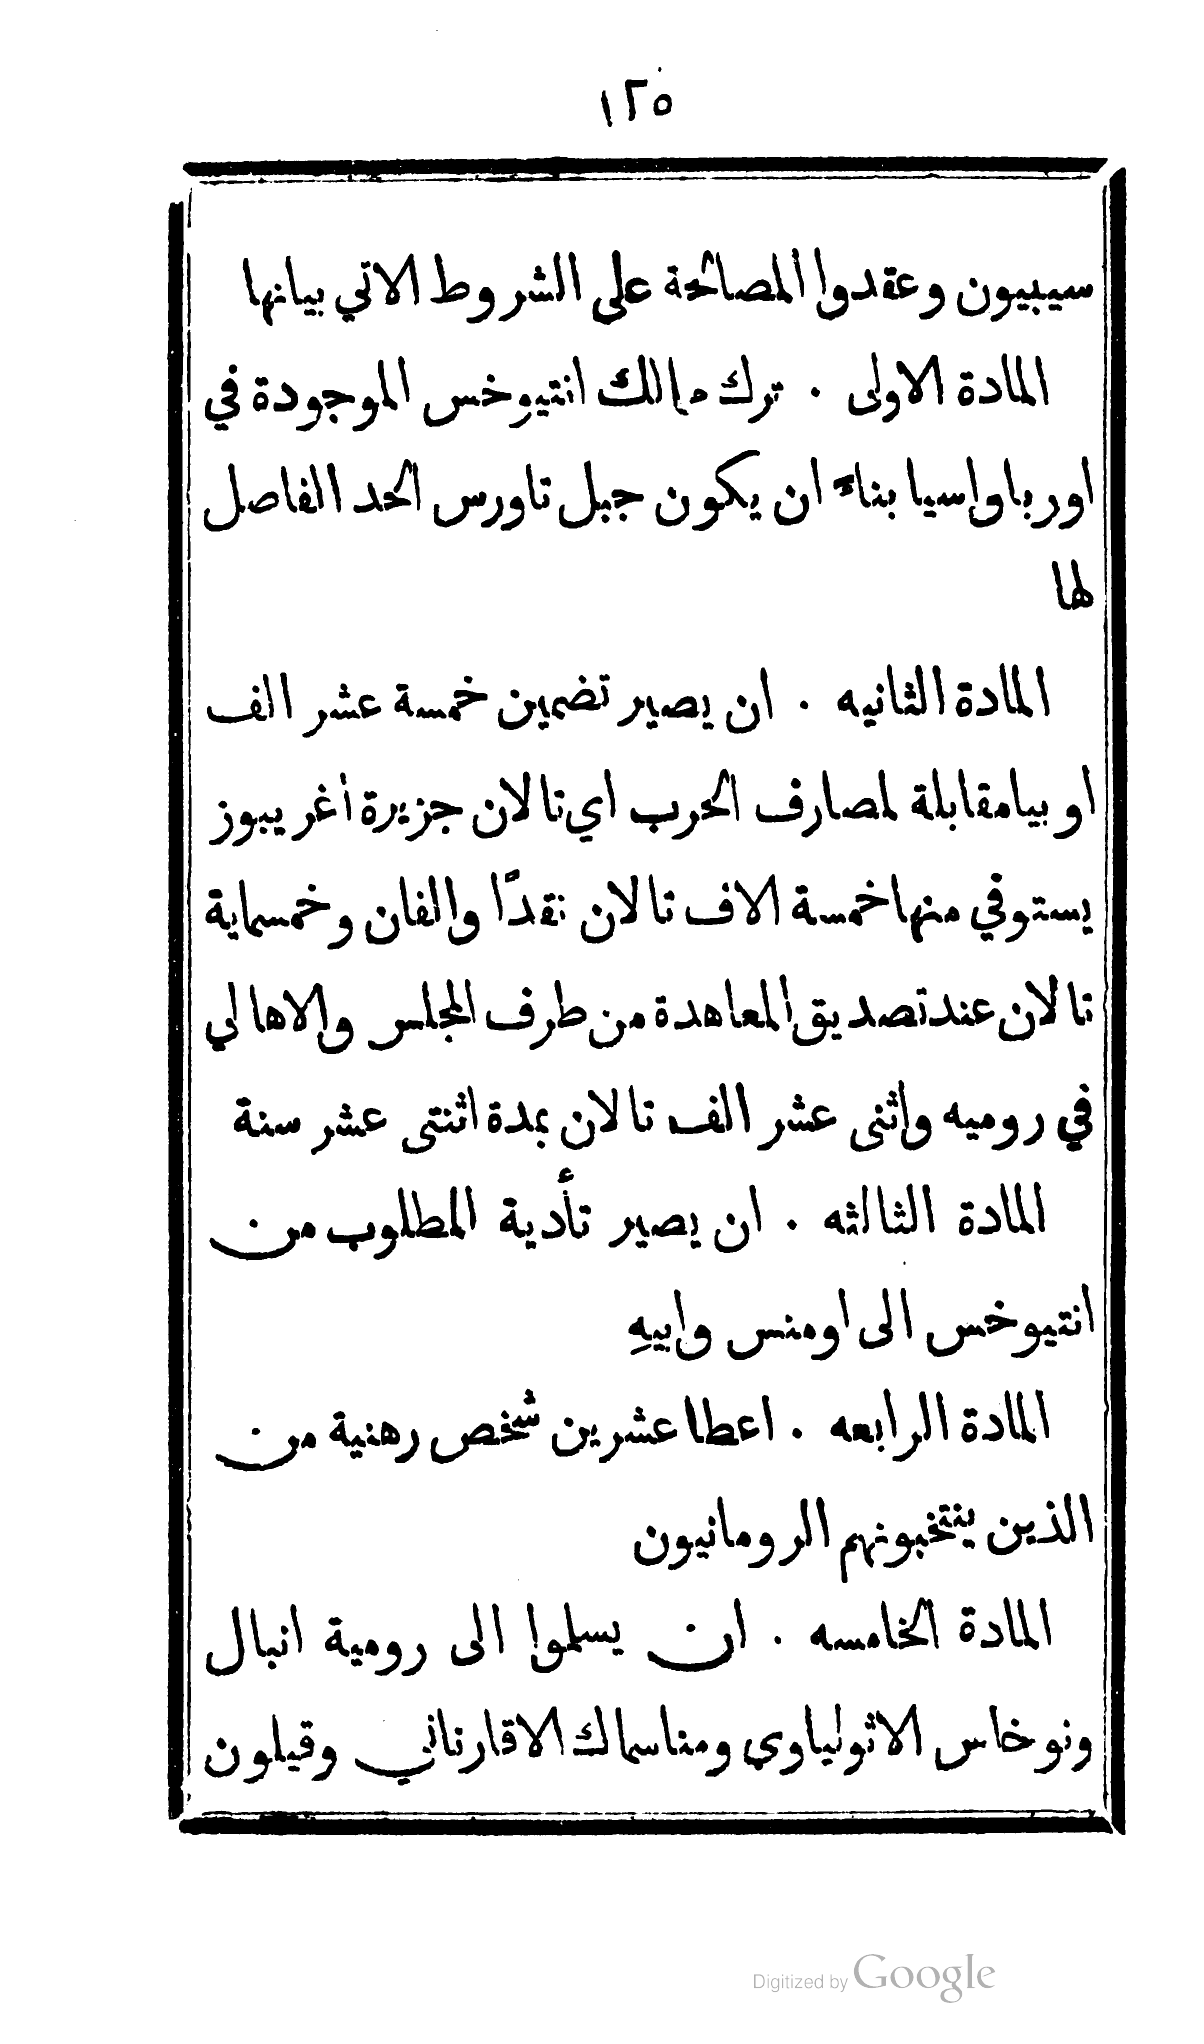 ١٢٥
سيبيون وعقدوا المصالحة على الشروط الاتي بيانها
المادة الاولى . ترك ممالك انتيوخس الموجودة في
اورباواسيا بناءً ان يكون جبل تاورس الحد الفاصل
لها
المادة الثانيه . ان يصير تضمين خمسة عشر الف
او بيامقابلة لمصارف الحرب اي تالان جزيرة أغريبوز
يستوفي منها خمسة الاف تالان نقدًا والفان وخمسماية
تالان عند تصديق المعاهدة من طرف المجلس والاهالي
في روميه واثنى عشر الف تالان بمدة اثنتى عشر سنة
المادة الثالثه . ان يصير تأدية المطلوب من
انتيوخس الى اومنس وابيهِ
المادة الرابعه . اعطا عشرين شخص رهنية من
الذين ينتخبونهم الرومانيون
المادة الخامسه . ان يسلموا الى رومية انبال
ونوخاس الاثولياوي ومناسمالك الاقارناني وقيلون
Digitized by Google